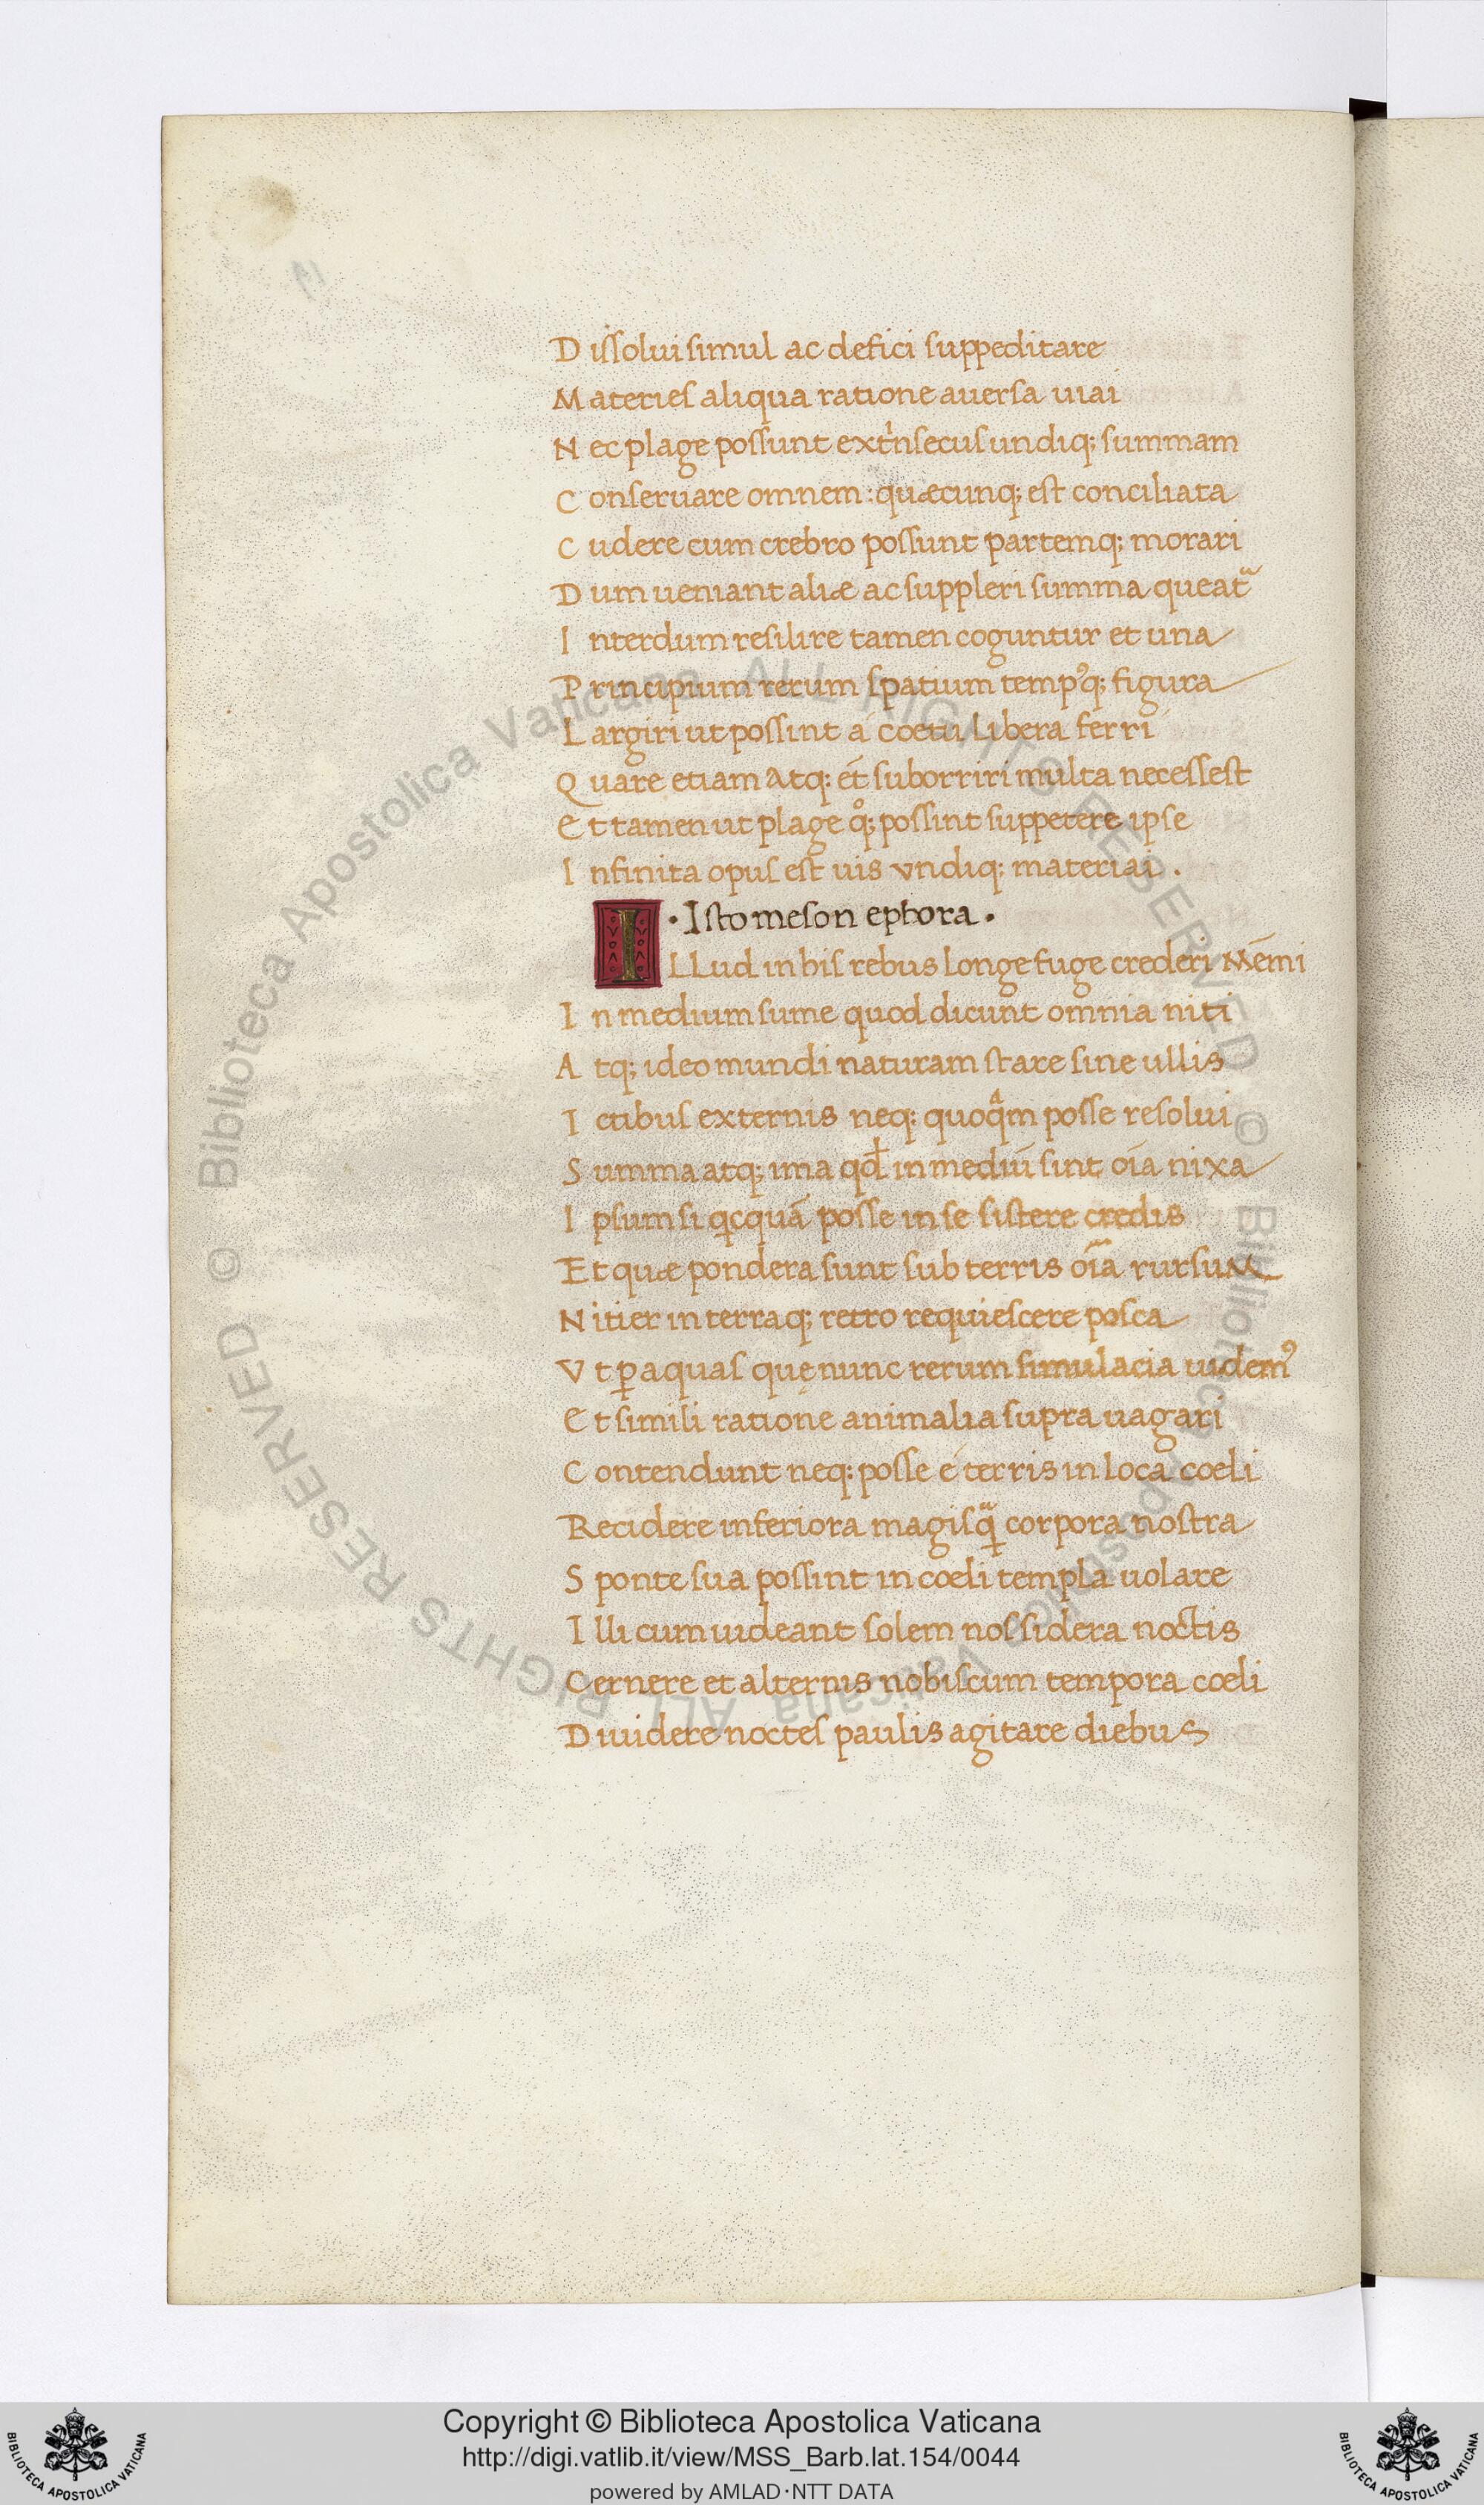 D issolui simul ac defici suppeditare
M ateries aliqua ratione auersa uiai
N ec plage possunt extrinsecus undiq; summam
C onseruare omnem : quæcunq; est conciliata
C udere cum crebro possunt partemq; morari
D um ueniant aliæ ac suppleri summa queatᷓ
I nterdum resilire tamen coguntur et una
P rincipium rerum spatium tempꝰq; figura
L argiri ut possint á coetu libera ferri
Q uare etiam Atq; et̄ suborriri multa necessest
E t tamen ut plage qͦ; possint suppetere ipse
I nfinita opus est uis vndiq; materiai .
· Isto meson ephora ·
I LLud in his rebus longe fuge crederi Mēmi
I n medium sume quod dicunt omnia niti
A tq; ideo mundi naturam stare sine ullis
I ctibus externis neq; quoqᷓm posse resolui
S umma atq; ima qđ in mediū sint oīa nixa
I psum si qcquā posse in se sistere credis
Et quæ pondera sunt sub terris oīa rursum
N itier in terraq; retro requiescere posca
V t ꝑ aquas quę nunc rerum simulacia uidemꝰ
E t simili ratione animalia supra uagari
C ontendunt neq; posse é terris in loca coeli
Recidere inferiora magisqᷓ corpora nostra
S ponte sua possint in coeli templa uolare
I lli cum uideant solem nos sidera noctis
Cernere et alternis nobiscum tempora coeli
D iuidere noctes paulis agitare diebus
Copyright © Biblioteca Apostolica Vaticana
http://digi.vatlib.it/view/MSS_Barb.lat.154/0044
powered by AMLAD·NTT DATA
BIBLIOTECA APOSTOLICA VATICANA
BIBLIOTECA APOSTOLICA VATICANA
© Biblioteca Apostolica Vaticana ALL RIGHTS RESERVED
© Biblioteca Apostolica Vaticana ALL RIGHTS RESERVED